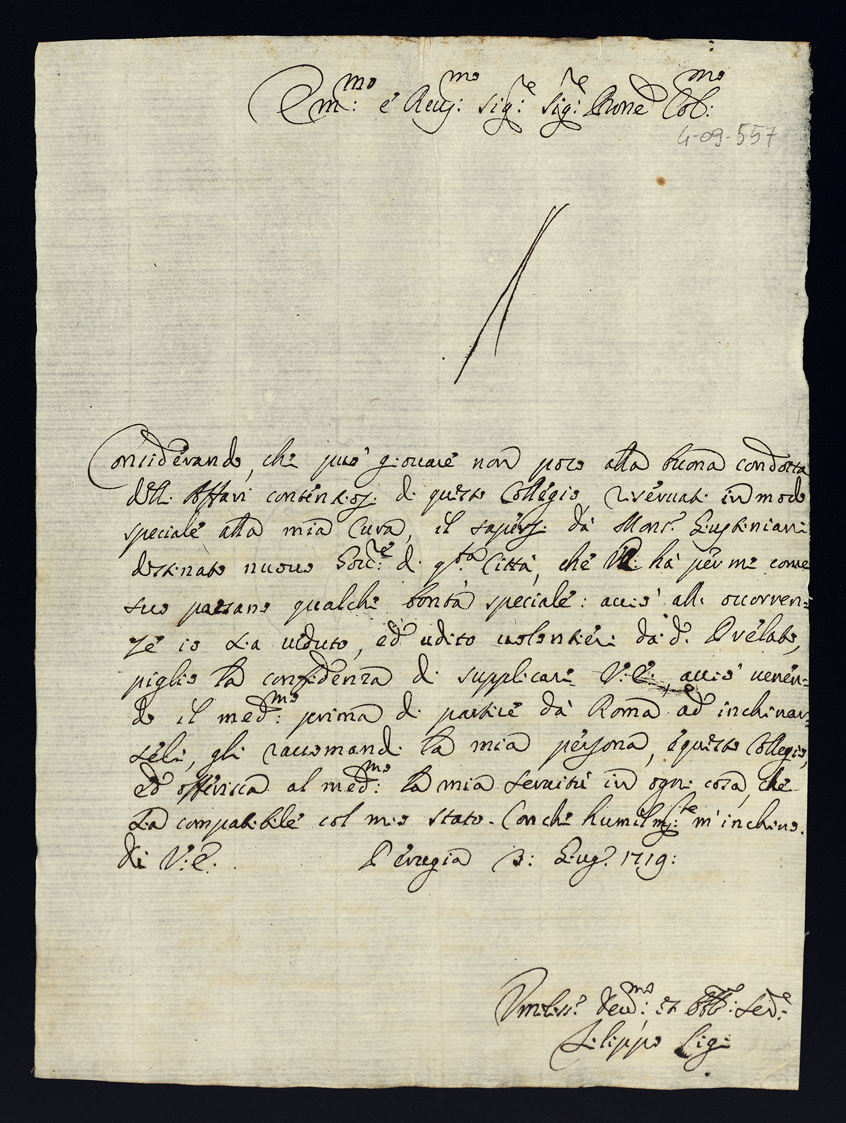 Em.mo e Rev: Sig.re Sig.re Pron.e Col.mo
4-09-557
Considerando, che può giovare non poco alla buona condotta
delli Affari contentiosi di questo Collegio, riservati in modo
speciale alla mia Cura, il sapersi da Mons.r
destinato nuovo Gov.re di q.sta Città, che V.E. hà per me come
suo paesano qualche bontà speciale: acciò alle occorren=
ze io sia veduto, ed udito volontieri da d.o Prelato,
piglio la confidenza di supplicare V.E., acciò venen=
do il med.mo prima di partire da Roma ad inchinar=
seli, gli raccomandi la mia persona, e questo Collegio,
ed offerisca al med.mo la mia servitù in ogni cosa, che
sia compatibile col mio stato. Con che humilm.te m'inchino.
di V.E. Perugia 3: Lug. 1719:
Umiliss.o Dev.mo et Obb: Ser.e
Filippo